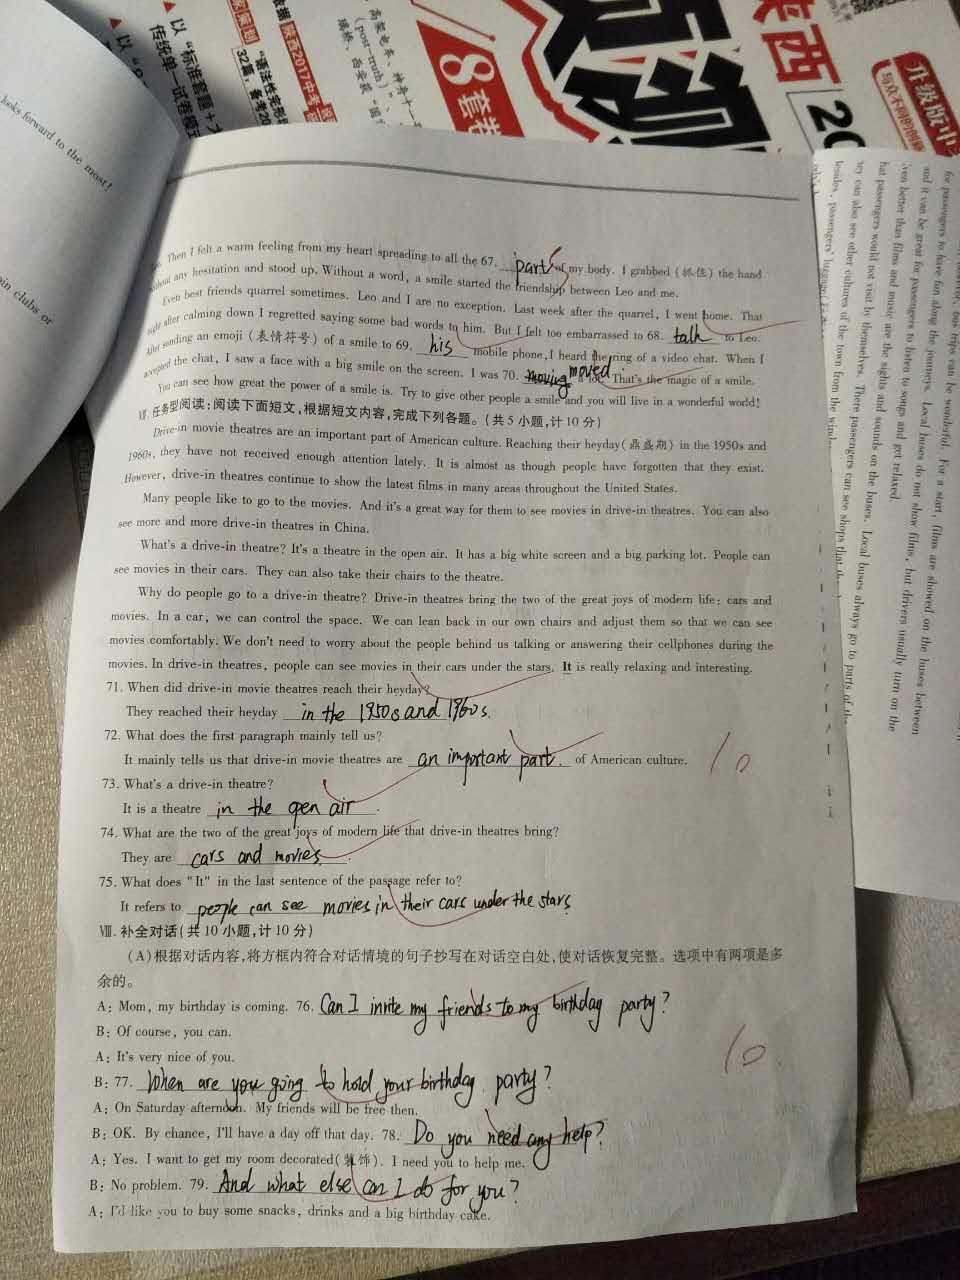 looks forward to the most!
in clubs or
▲ 以“标准套题+
传统单一试卷模
“语法性名形
32篇,备考20
数据
聚焦2017中考
(post-truth)
/8套卷
预测
陕西
20
升级版中
与众不同的创新
Then I felt a warm feeling from my heart spreading to all the 67. parts of my body. I grabbed (抓住) the hand
without any hesitation and stood up. Without a word, a smile started the friendship between Leo and me.
Even best friends quarrel sometimes. Leo and I are no exception. Last week after the quarrel, I went home. That
night after calming down I regretted saying some bad words to him. But I felt too embarrassed to 68. talk to Leo.
After sending an emoji (表情符号) of a smile to 69. his mobile phone, I heard the ring of a video chat. When I
accepted the chat, I saw a face with a big smile on the screen. I was 70. moving moved a lot. That's the magic of a smile.
You can see how great the power of a smile is. Try to give other people a smile and you will live in a wonderful world!
Ⅶ. 任务型阅读:阅读下面短文,根据短文内容,完成下列各题。(共5小题,计10分)
Drive-in movie theatres are an important part of American culture. Reaching their heyday(鼎盛期) in the 1950s and
1960s, they have not received enough attention lately. It is almost as though people have forgotten that they exist.
However, drive-in theatres continue to show the latest films in many areas throughout the United States.
Many people like to go to the movies. And it's a great way for them to see movies in drive-in theatres. You can also
see more and more drive-in theatres in China.
What's a drive-in theatre? It's a theatre in the open air. It has a big white screen and a big parking lot. People can
see movies in their cars. They can also take their chairs to the theatre.
Why do people go to a drive-in theatre? Drive-in theatres bring the two of the great joys of modern life: cars and
movies. In a car, we can control the space. We can lean back in our own chairs and adjust them so that we can see
movies comfortably. We don't need to worry about the people behind us talking or answering their cellphones during the
movies. In drive-in theatres, people can see movies in their cars under the stars. It is really relaxing and interesting.
71. When did drive-in movie theatres reach their heyday?
They reached their heyday in the 1950s and 1960s.
72. What does the first paragraph mainly tell us?
It mainly tells us that drive-in movie theatres are an important part. of American culture.
10
73. What's a drive-in theatre?
It is a theatre in the open air.
74. What are the two of the great joys of modern life that drive-in theatres bring?
They are cars and movies.
75. What does "It" in the last sentence of the passage refer to?
It refers to people can see movies in their cars under the stars.
Ⅷ. 补全对话(共10小题,计10分)
(A)根据对话内容,将方框内符合对话情境的句子抄写在对话空白处,使对话恢复完整。选项中有两项是多
余的。
A: Mom, my birthday is coming. 76. Can I invite my friends to my birthday party?
B: Of course, you can.
10
A: It's very nice of you.
B: 77. When are you going to hold your birthday party?
A: On Saturday afternoon. My friends will be free then.
B: OK. By chance, I'll have a day off that day. 78. Do you need any help?
A: Yes. I want to get my room decorated(装饰). I need you to help me.
B: No problem. 79. And what else can I do for you?
A: I'd like you to buy some snacks, drinks and a big birthday cake.
for passengers to have fun along the journeys. Local buses do not show films, but drivers usually turn on the
and it can be great for passengers to listen to songs and get relaxed.
even better than films and music are the sights and sounds on the buses. Local buses always go to parts of the
that passengers would not visit by themselves. There passengers can see shops that
they can also see other cultures of the town from the
besides, passengers' luggage